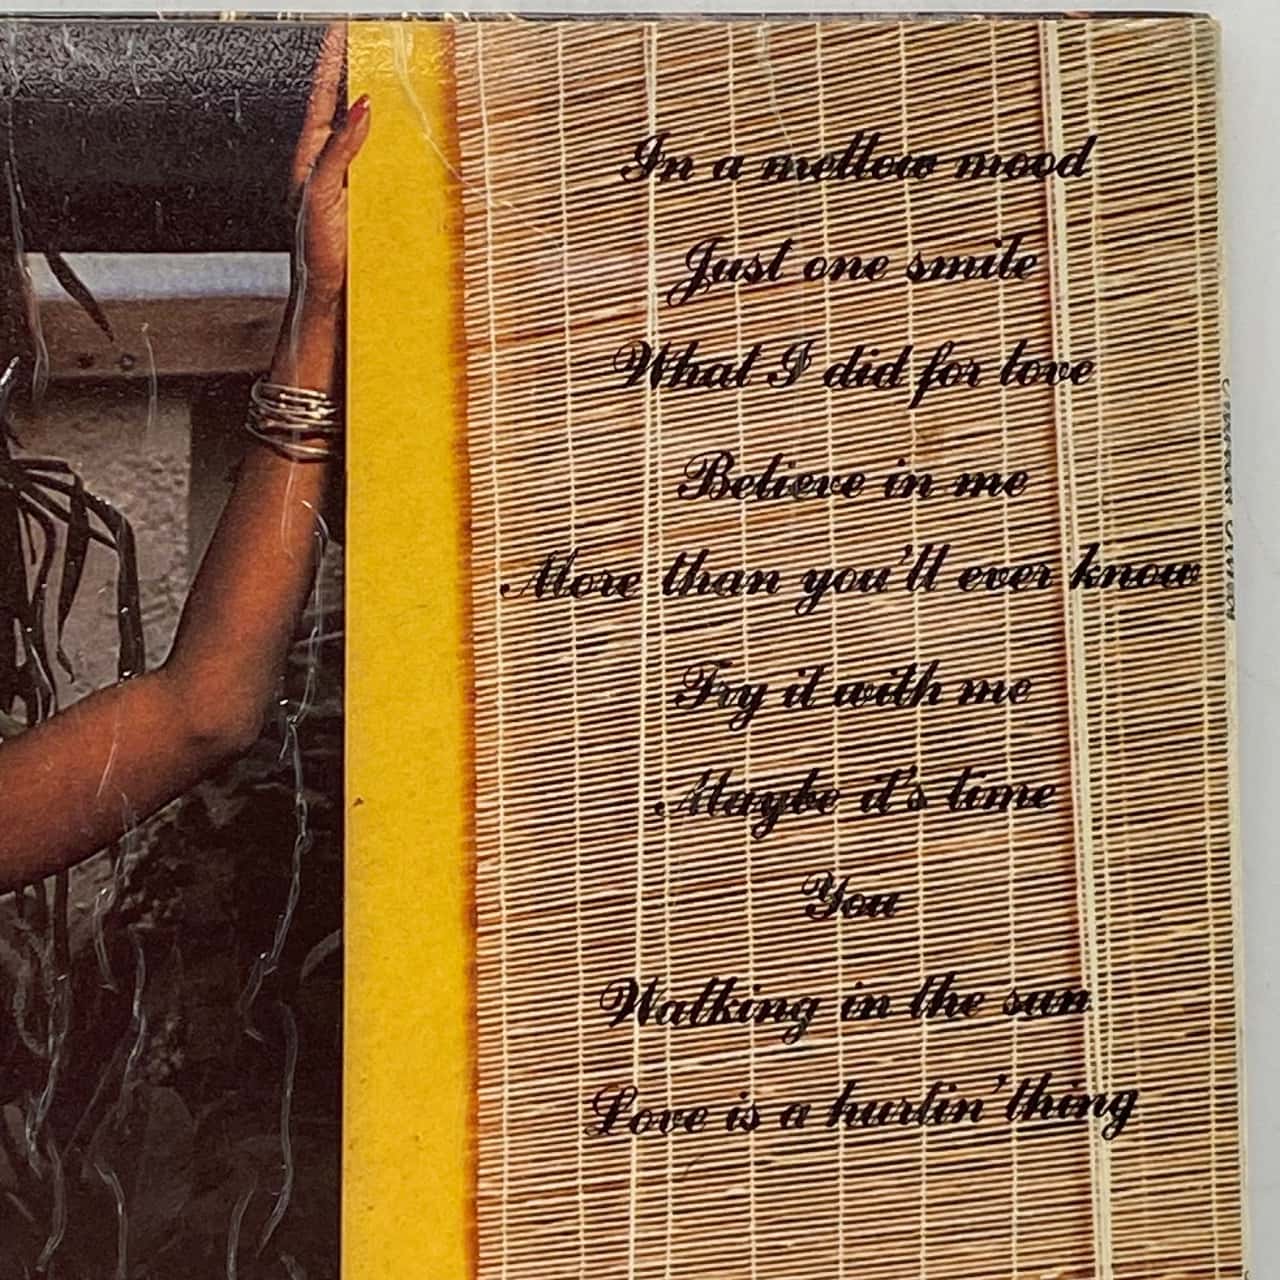 In a mellow mood
Just one smile
What I did for love
Believe in me
More than you'll ever know
Try it with me
Maybe it's time
You
Walking in the sun
Love is a hurtin' thing